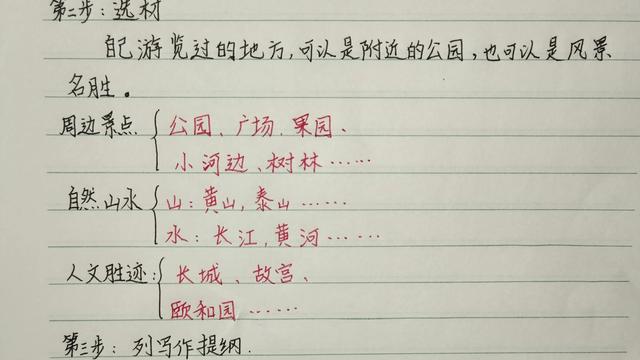 第二步：选材
自己游览过的地方,可以是附近的公园,也可以是风景
名胜。
周边景点 公园、广场、果园、
小河边、树林……
自然山水 山：黄山,泰山……
水：长江,黄河……
人文胜迹: 长城、故宫、
颐和园……
第三步：列写作提纲.